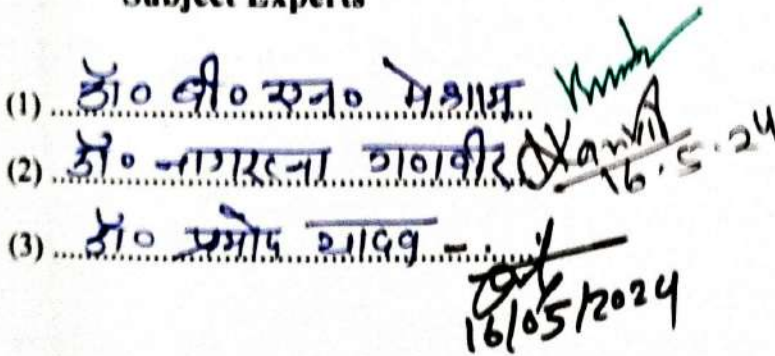 Subject Experts
(1) डॉ० बी० एन० मेश्राम
(2) डॉ० नागरत्ना गणवीर 16.5.24
(3) डॉ० प्रमोद यादव -
16/05/2024